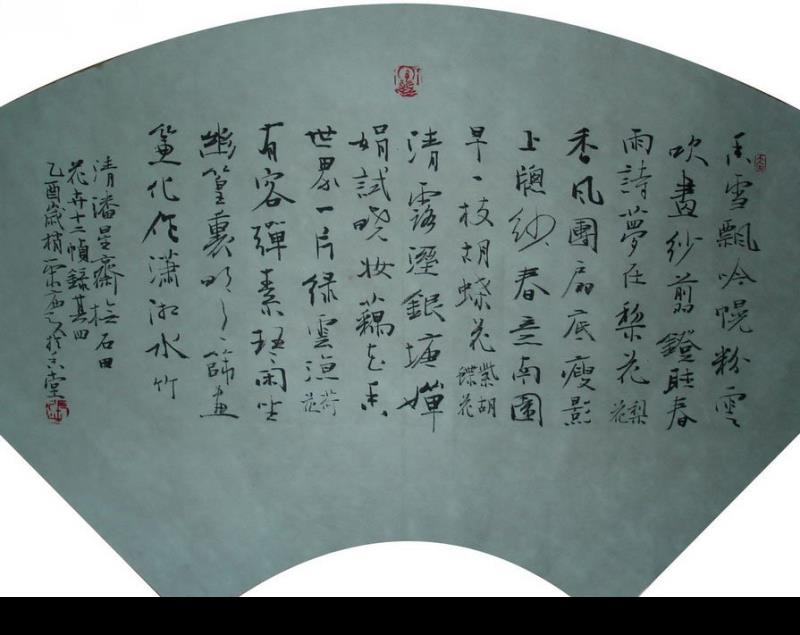 香雪飄吟幌粉雲
吹畫紗翦鐙聽春
雨詩夢在梨花梨花
香風團扇底瘦影
上牕紗春意南園
早一枝胡蝶花紫胡蝶花
清露溼銀塘嬋
娟試曉妝藕花香
世界一片綠雲涼荷花
有客彈素琴閑坐
幽篁裏明月篩畫
簾化作瀟湘水竹
清潘星齋撫石田
花卉十二幀錄其四
乙酉歲梢